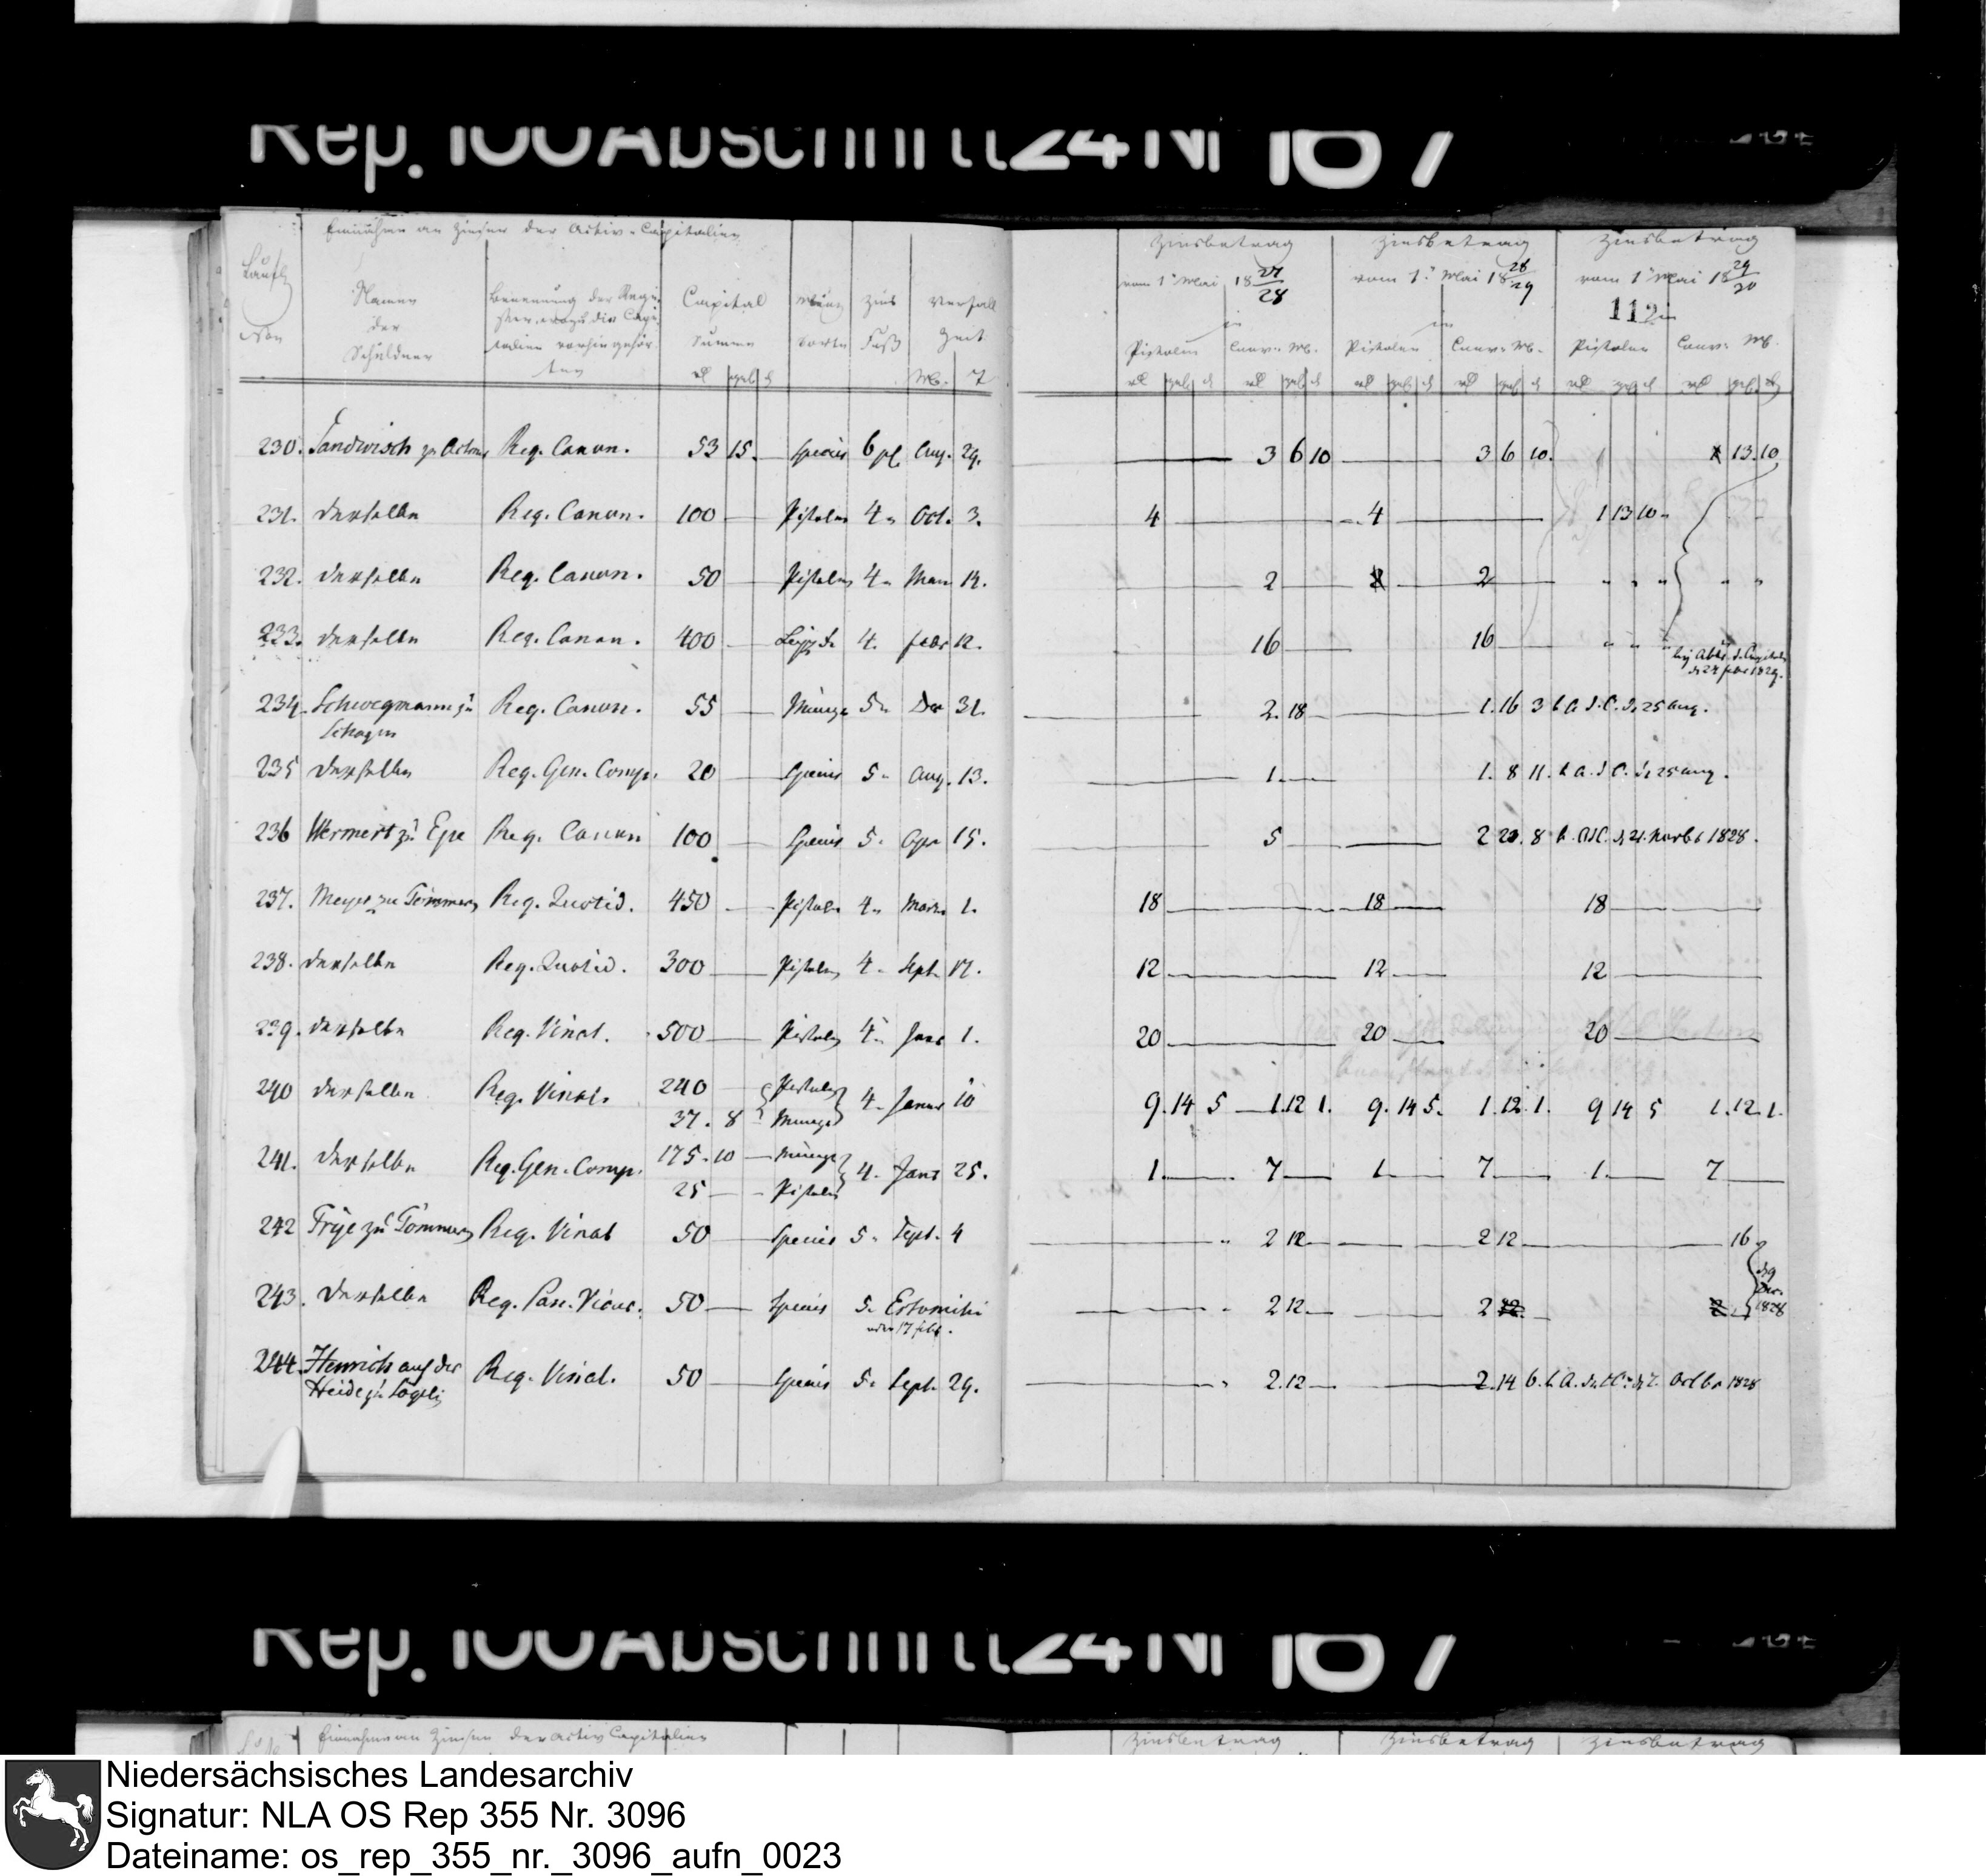 Rep. 100 Abschnitt 24 Nr 107
Einnahme an Zinsen der Activ-Capitalien
Laufh
Namen der Schuldner
Benennung der Register, wozu die Capitalien vorhin gehörten
Capital Summe
Münz Sorte
Zins Fuß
Verfall Zeit
Zinsbetrag vom 1n Mai 18 27/28 in
Zinsbetrag vom 1n Mai 18 28/29 in
Zinsbetrag vom 1n Mai 18 29/30 in
112
Pistolen Conv: M. Pistolen Conv: M. Pistolen Conv: M.
230. Sandwisch zu Reg. Canon. 53 15. Species 6 pf. Aug. 29. 3 6 10 3 6 10. 13. 10
231. derselbe Reg. Canon. 100 Pistolen 4 Oct. 3. 4 4 1 13 10
232. derselbe Reg. Canon. 50 Pistolen 4 12. 2 2
233. derselbe Reg. Canon. 400 4. Febr 12. 16 16
d 24 Febr 1829.
234. Schwegmann zu Schagen Reg. Canon. 55 Münze 5 Dec 31. 2. 18 1. 16 3 b. A. d. C. d. 25 Aug.
235 derselbe Reg. Gen. Comp. 20 Species 5 Aug. 13. 1. 1. 8 11. b. A. d C. d. 25 Aug.
236 Wermert zu Epe Reg. Canon 100 Species 5. Apr 15. 5 2 20. 8 b. A. d C. d. 21. Novbr 1828.
237. Meyer zu Tömmern Reg. Quotid. 450 Pistolen 4 Martz 1. 18 18 18
238. derselbe Reg. Quotid. 300 Pistolen 4 Sept. 17. 12 12 12
239. derselbe Reg. Vinal. 500 Pistolen 4 Janr 1. 20 20 20
240 derselbe Reg. Vinal. 240 Pistolen 4 Januar 10 9. 14 5 1. 12 1. 9. 14 5. 1. 12. 1. 9 14 5 1. 12. 1.
37. 8 Münze
241. derselbe Reg. Gen. Comp. 175. 10 Münze 4. Janr 25. 1. 7 1 7 1. 7
25 Pistolen
242 Frije zu Tömmern Reg. Vinal 50 Species 5. Sept. 4 2 12 2 12 16
243. derselbe Reg. Pan. Vicar. 50 Species 5. Estomihi 2 12 2
oder 17 Febr.
d 9 Dec. 1828
244. Henrich auf der Heide zu Reg. Vinal. 50 Species 5. Sept. 29. 2. 12 2. 14 6. b. A. d. C. d 7. Octbr 1828
Rep. 100 Abschnitt 24 Nr 107
Einnahme an Zinsen der Activ Capitalien
Zinsbetrag Zinsbetrag Zinsbetrag
Niedersächsisches Landesarchiv
Signatur: NLA OS Rep 355 Nr. 3096
Dateiname: os_rep_355_nr._3096_aufn_0023